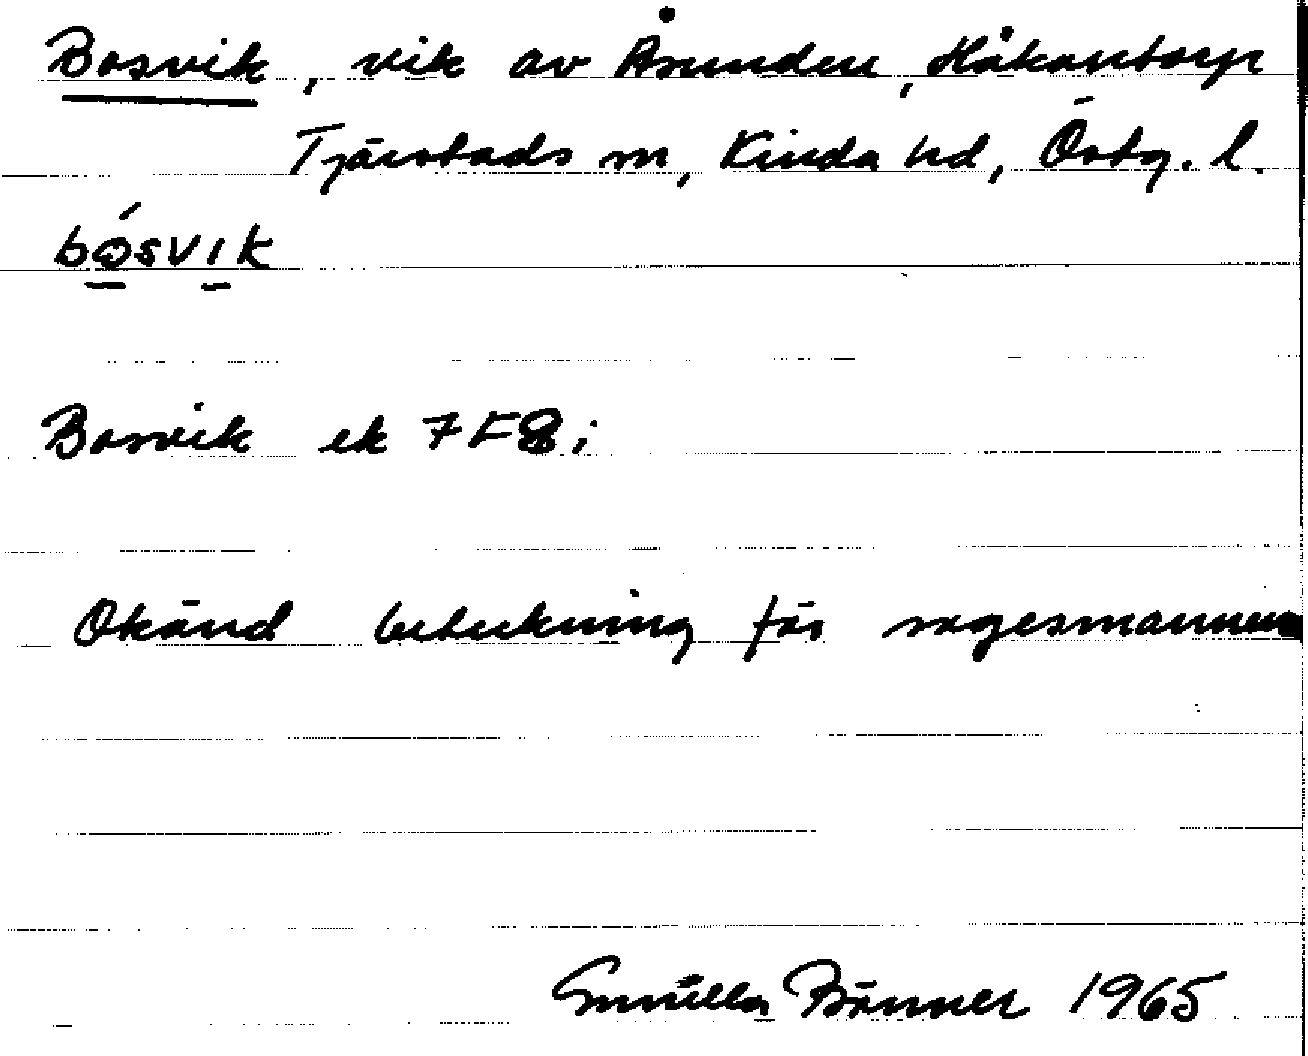 Bosvik, vik av Åsunden, Håkantorp
Tjärstads sn, Kinda hd, Östg. l.
bo̱svı̱k
Bosvik ek 7F8i
Okänd beteckning för sagesmannen
Gunilla 1965